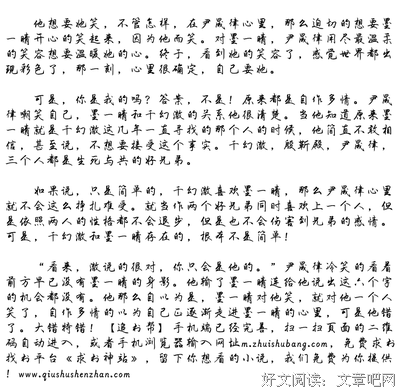 他想要她笑，不管怎样，在尹晟律心里，那么迫切的想要墨
一晴开心的笑起来，因为他而笑。对墨一晴，尹晟律用尽最温柔
的笑容想要温暖她的心。终于，看到她的笑容了，感觉世界都出
现彩色了，那一刻，心里很确定，自己要她。
可是，你是我的吗？答案，不是！原来都是自作多情。尹晟
律嘲笑自己，墨一晴和千幻澈的关系他很清楚。当他知道原来墨
一晴就是千幻澈这几年一直寻找的那个人的时候，他简直不敢相
信，甚至说，不想要接受这个事实。千幻澈，殷靳殿，尹晟律，
三个人都是生死与共的好兄弟。
如果说，只是简单的，千幻澈喜欢墨一晴，那么尹晟律心里
就不会这么挣扎难受。就当作两个好兄弟同时喜欢上一个人，但
是依照两人的性格都不会退步，但是也不会伤害到兄弟的感情。
可是，千幻澈和墨一晴存在的，根本不是简单！
“看来，澈说的很对，你只会是他的。”尹晟律冷笑的看着
前方早已没有墨一晴的身影。他输了墨一晴连给他说出这六个字
的机会都没有。他那么自以为是，墨一晴对他笑，就对他一个人
笑了，自作多情的以为自己正逐渐走进墨一晴的心里，可是他错
了。大错特错！【追书帮】手机端已经完善，扫一扫页面的二维
码自动进入，或者手机浏览器输入网址m.zhuishubang.com，免费求书
找书平台《求书神站》，留下你想看的小说，我们免费为你提供
！www.qiushushenzhan.com
好文阅读：文章吧网